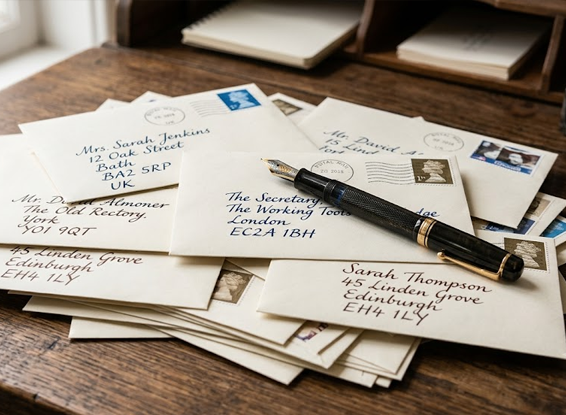 Mrs. Sarah Jenkins
12 Oak Street
Bath
BA2 5RP
UK
Mr. David A.
15
Mr. Almoner
The Old Rectory.
York
YO1 9QT
The Secretary
The Working Tools
London
EC2A 1BH
45 Linden Grove
Edinburgh
EH4 1LY
Sarah Thompson
45 Linden Grove
Edinburgh
EH4 1LY